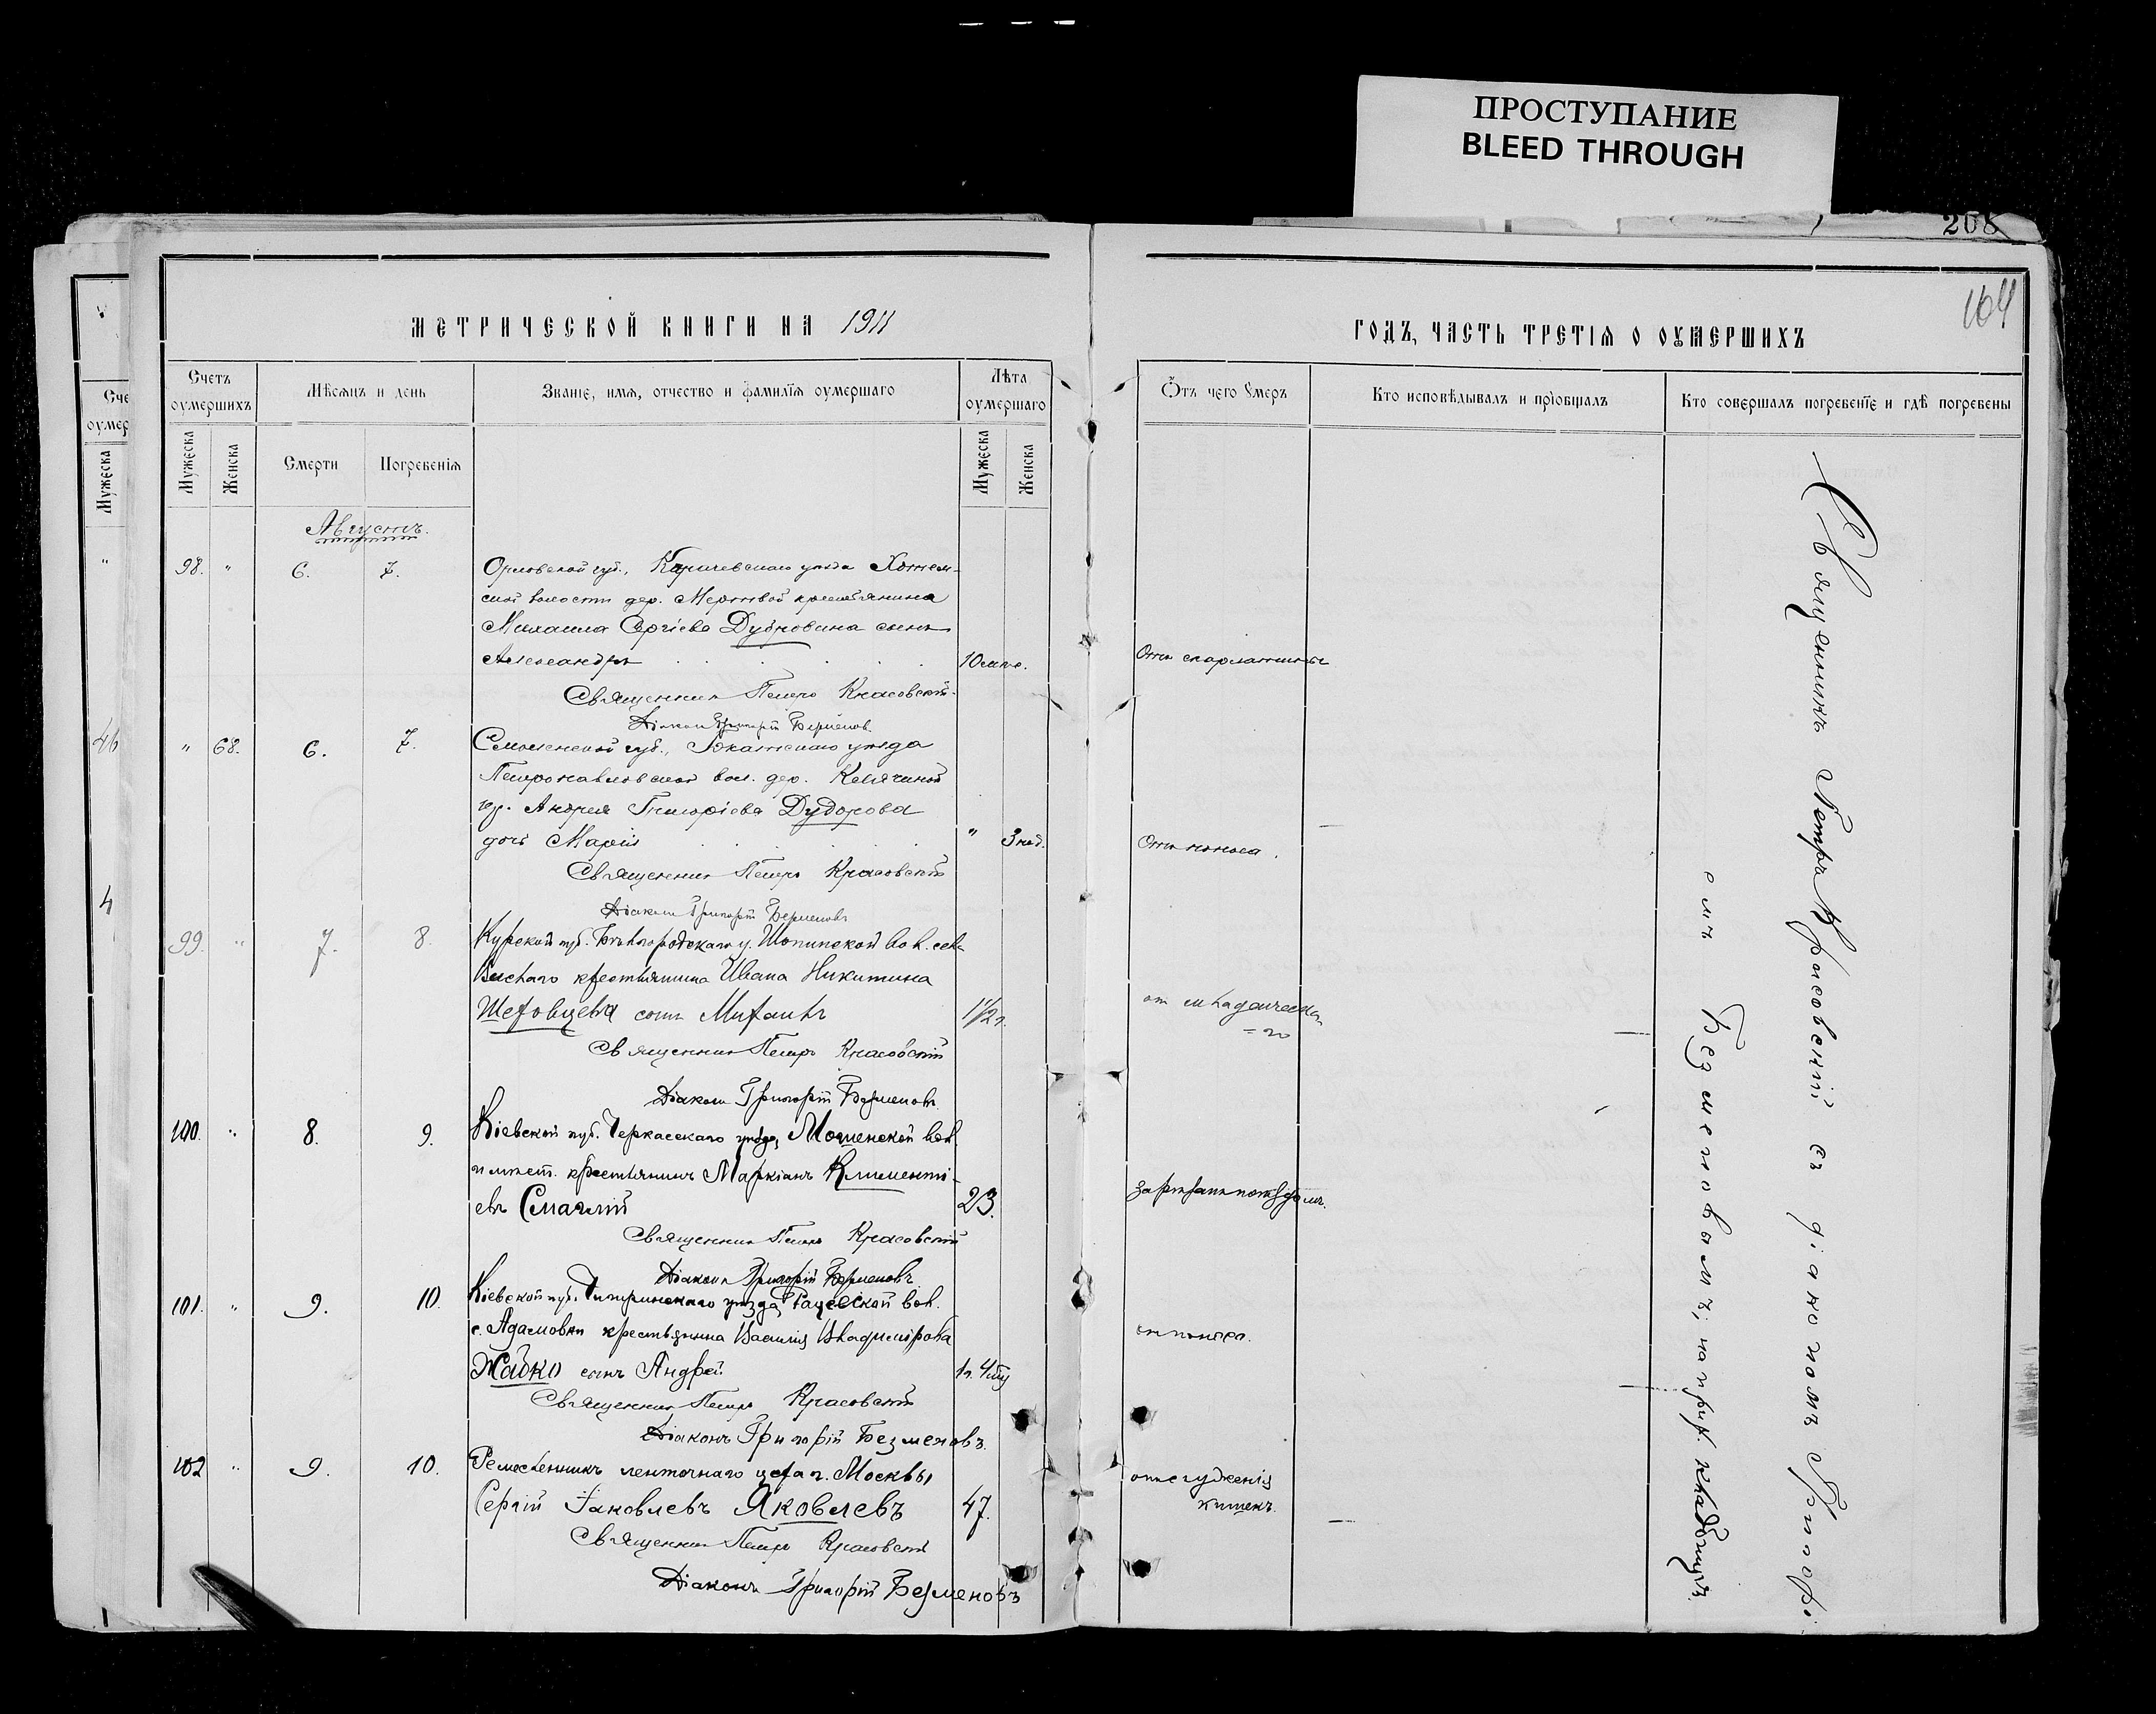 ПРОСТУПАНИЕ
BLEED THROUGH
208
164
МЕТРИЧЕСКОЙ КНИГИ НА 1911
ГОДЪ, ЧАСТЬ ТРЕТІЯ О ОУМЕРШИХЪ
Счетъ оумершихъ
Мѣсяцъ и день
Званіе, имя, отчество и фамилія оумершаго
Лѣта оумершаго
Ѿтъ чего ѹмеръ
Кто исповѣдывалъ и пріобщалъ
Кто совершалъ погребеніе и гдѣ погребены
Мужеска
Женска
Смерти
Погребенія
Мужеска
Женска
Августъ.
98. " 6. 7. Орловской губ., Карачевскаго уѣзда Хотем-
ской волости дер. Мертвой крестьянина
Михаила Сергіева Дубровина сынъ
Александръ 10 Отъ скарлатины
Священникъ Петръ Красовскій.
Діаконъ Григорій Безменовъ.
" 68. 6. 7. Смоленской губ., Юхновскаго уѣзда
Петропавловской вол. дер.
кр. Андрея Григоріева Дудорова
дочь Марія " 3 нед. Отъ поноса.
Священникъ Петръ Красовскій
Діаконъ Григорій Безменовъ
99. " 7. 8. Курской губ. Бѣлгородскаго у. Шопинской вол. села
Вислаго крестьянина Ивана Никитина
Шеховцева сынъ Михаилъ 1 1/2 г. от младенческаго
Священникъ Петръ Красовскій
Діаконъ Григорій Безменовъ.
100. " 8. 9. Кіевской губ. Черкасскаго уѣзда, Мошенской вол.
и мѣст. крестьянинъ Маркіанъ Клименті-
евъ Смаглій 23. зарѣзанъ поѣздомъ.
Священникъ Петръ Красовскій
Діаконъ Григорій Безменовъ.
101. " 9. 10. Кіевской губ. Чигиринскаго уѣзда, Рацевской вол.
с. Адамовки крестьянина Василія Владимірова
Жабко сынъ Андрей 1 г. 4 мѣс отъ поноса.
Священникъ Петръ Красовскій
Діаконъ Григорій Безменовъ.
102 " 9. 10. Ремесленникъ ленточнаго цеха г. Москвы
Сергій Іаковлевъ Яковлевъ 47. отъ суженія
кишекъ.
Священникъ Петръ Красовскій
Діаконъ Григорій Безменовъ
Священникъ Петръ Красовскій съ діакономъ Григорі
емъ Безменовымъ; на кладбищѣ.